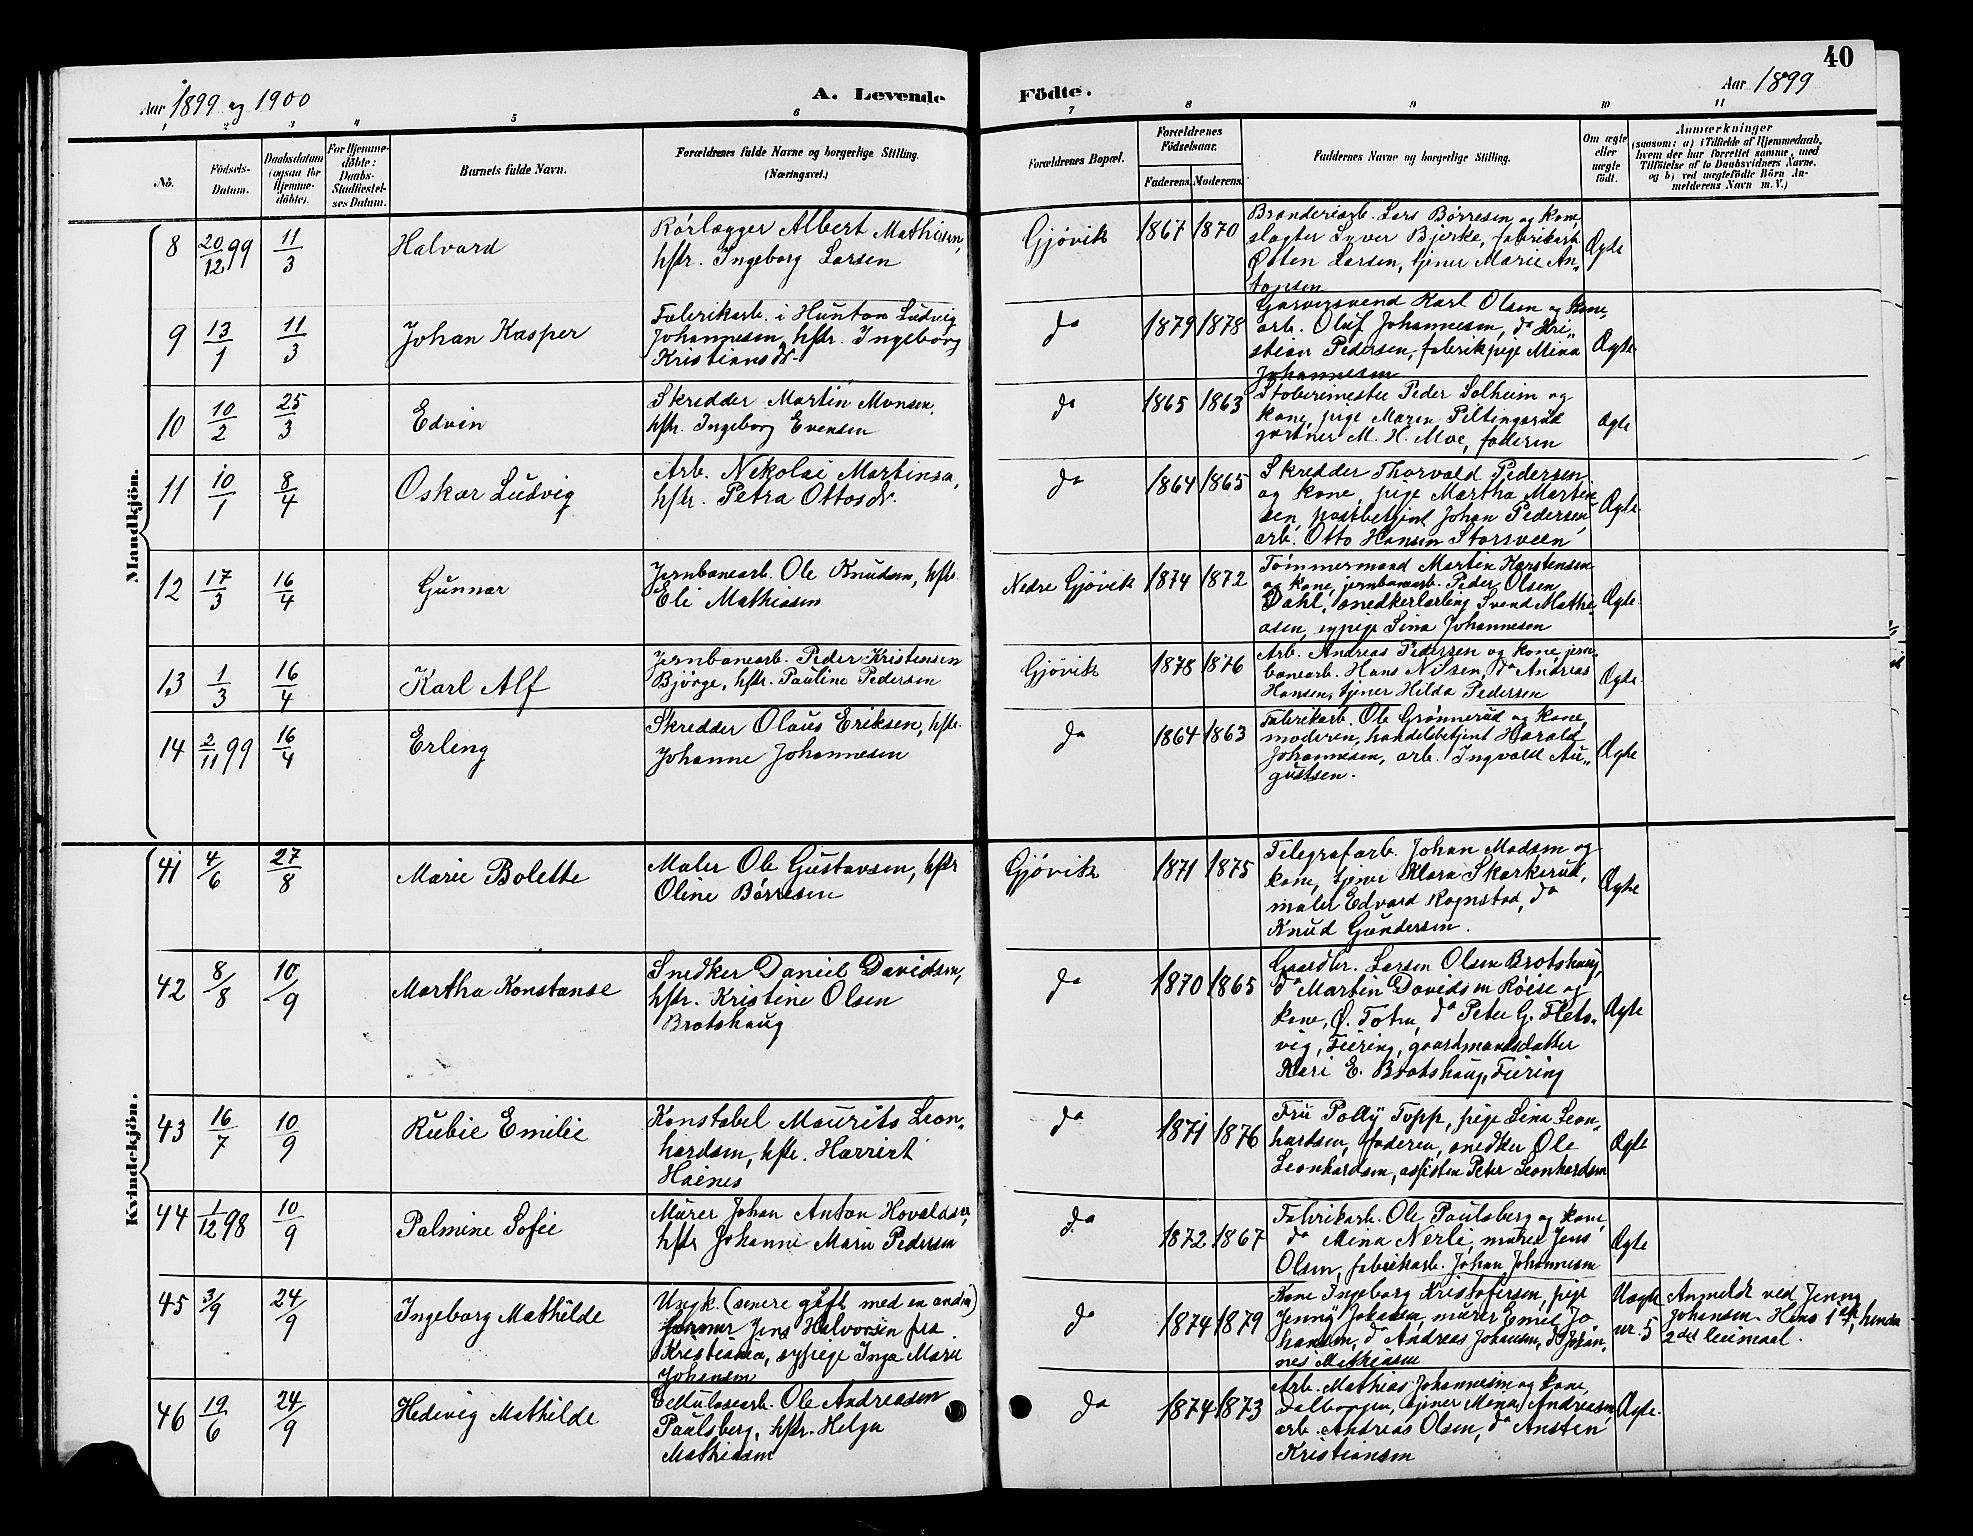 40
Aar 1899 og 1900
A. Levende
Födte.
Aar 1899
1 2 3 4 5 6 7 8 9 10 11
No.
Födsels-
Datum.
Daabsdatum
(ogsaa for
Hjemme-
döbte).
For Hjemme-
döbte:
Daabs-
Stadfæstel-
ses Datum.
Barnets fulde Navn.
Forældrenes fulde Navne og borgerlige Stilling.
(Næringsvei.)
Forældrenes Bopæl.
Forældrenes
Födselsaar.
Faderens. Moderens.
Faddernes Navne og borgerlige Stilling.
Om ægte
eller
uægte
födt.
Anmærkninger
(saasom: a) i Tilfælde af Hjemmedaab,
hvem der har forrettet samme, med
Tilföielse af to Daabsvidners Navne,
og b) ved uægtefödte Börn An-
melderens Navn m. V.)
Mandkjön.
8
20/12 99
11/3
Halvard
Rørlægger Albert Mathisen,
hstr. Ingeborg Larsen
Gjøvik
1867 1870
Brænderiarb. Lars Børresen og kone,
slagter Syver Bjerke, fabrikarb.
Østen Larsen, tjener Marie An-
tonsen
Ægte
9
13/1
11/3
Johan Kasper
Fabrikarb. i Hunton Ludvig
Johannesen, hstr. Ingeborg
Kristiansdr.
do
1879 1878
Garversvend Karl Olsen og kone,
arb. Oluf Johannesen, do Kri-
stian Pedersen, fabrikpige Mina
Johannesen
Ægte
10
10/2
25/3
Edvin
Skredder Martin Monsen,
hstr. Ingeborg Evensen
do
1865 1863
Støberimester Peder Solheim og
kone, pige Maren Piltingsrud
gartner M. H. Moe, faderen
Ægte
11
10/1
8/4
Oskar Ludvig
Arb. Nekolai Martinsen,
hstr. Petra Ottosdr.
do
1864 1865
Skredder Thorvald Pedersen
og kone, pige Martha Martin-
sen, postbetjent Johan Pedersen,
arb. Otto Hansen Storsveen
Ægte
12
17/3
16/4
Gunnar
Jernbanearb. Ole Knudsen, hstr.
Eli Mathiasen
Nedre Gjøvik
1874 1872
Tømmermand Martin Karstensen
og kone, jernbanearb. Peder Olsen
Dahl, snedkerlærling Svend Mathi-
asen, sypige Lina Johannesen
Ægte
13
1/3
16/4
Karl Alf
Jernbanearb. Peder Kristensen
Bjørge, hstr. Pauline Pedersen
Gjøvik
1878 1876
Arb. Andreas Pedersen og kone, jern-
banearb. Hans Nilsen, do Andreas
Hansen, tjener Hilda Pedersen
Ægte
14
2/11 99
16/4
Erling
Skredder Olaus Eriksen, hstr.
Johanne Johannesen
do
1864 1863
Fabrikarb. Ole Grønnerud og kone,
moderen, handelsbetjent Harald
Johannesen, arb. Ingvald Au-
gustsen.
Ægte
Kvindekjön.
41
4/6
27/8
Marie Bolette
Maler Ole Gustavsen, hstr
Oline Børresen
Gjøvik
1871 1875
Telegrafarb. Johan Madsen og
kone, tjener Klara Skarkerud,
maler Edvard Rognstad, do
Knud Gundersen.
Ægte
42
8/8
10/9
Martha Konstanse
Snedker Daniel Davidsen,
hstr. Kristine Olsen
Brotshaug
do
1870 1865
Gaardbr. Larsen Olsen Brotshaug,
do Martin Davidsen Røise og
kone, Ø. Toten, do Peter G. Flets-
vig, Feiring, gaardmandsdatter
Kari E. Brotshaug, Feiring
Ægte
43
16/7
10/9
Rubie Emilie
Konstabel Maurits Leon-
hardsen, hstr. Harriet
Haines
do
1871 1876
Fru Polly Topp, pige Lina Leon-
hardsen, faderen, snedker Ole
Leonhardsen, assistent Peter Leonhardsen
Ægte
44
1/12 98
10/9
Palmine Sofie
Murer Johan Anton Hovaldsen,
hstr Johanne Marie Pedersen
do
1872 1867
Fabrikarb. Ole Paulsberg og kone,
do Mina Nerli, murer Jens
Olsen, fabrikarb. Johan Johannesen
Ægte
45
3/9
24/9
Ingeborg Mathilde
Ungk. (senere gift med en anden)
Jens Halvorsen fra
Kristiania, sypige Inga Marie
Johansen
do
1874 1879
Kone Ingeborg Kristofersen, pige
Jenny Johansen, murer Emil Jo-
hansen, do Andreas Johansen, do Johan-
nes Mathiasen
Uægte
nr. 5
Anmeldt ved Jenny
Johansen. Hans 1ste, hendes
2det leiermaal.
46
19/6
24/9
Hedevig Mathilde
Cellulosearb. Ole Andreassen
Paulsberg, hstr. Helga
Mathiasen
do
1874 1873
Arb. Mathias Johannesen og kone,
Dalborgen, tjener Mina Andreasen,
arb. Andreas Olsen, do Ansten
Kristiansen
Ægte.